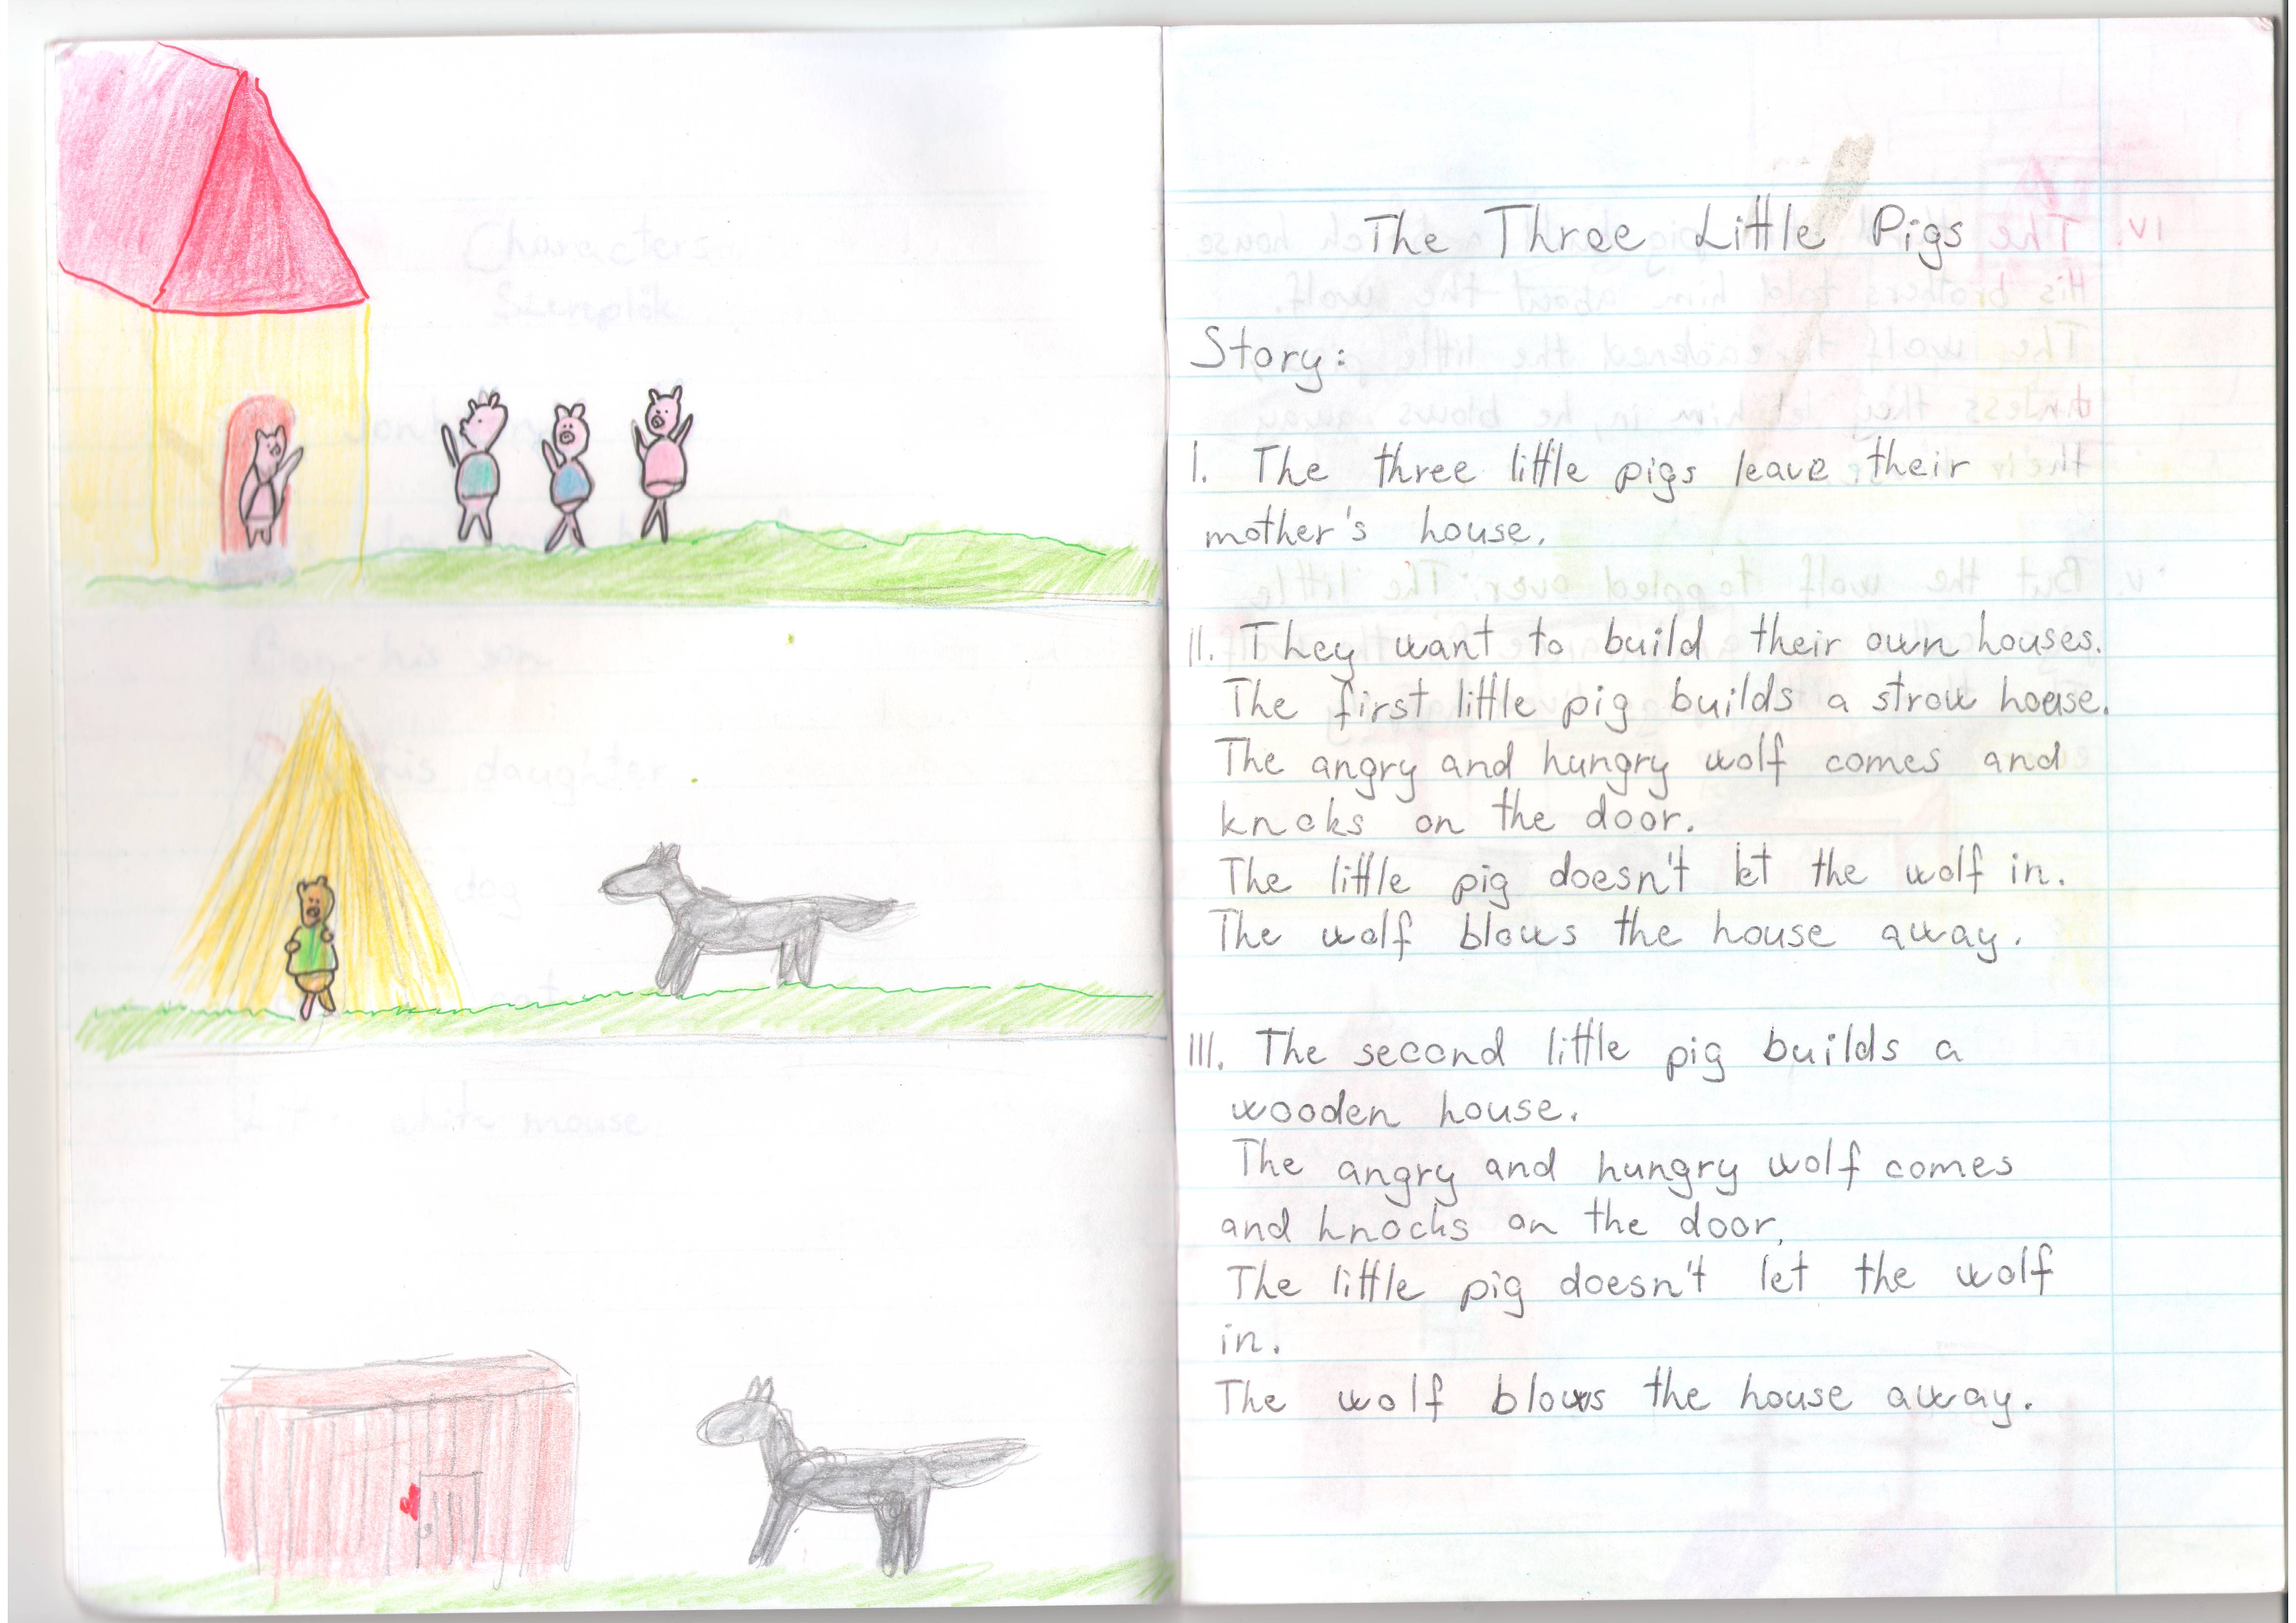 The Three Little Pigs
Story:
I. The three little pigs leave their
mother's house.
II. They want to build their own houses.
The first little pig builds a strow house.
The angry and hungry wolf comes and
knoks on the door.
The little pig doesn't let the wolf in.
The wolf blows the house away.
III. The second little pig builds a
wooden house.
The angry and hungry wolf comes
and knocks on the door.
The little pig doesn't let the wolf
in.
The wolf blows the house away.